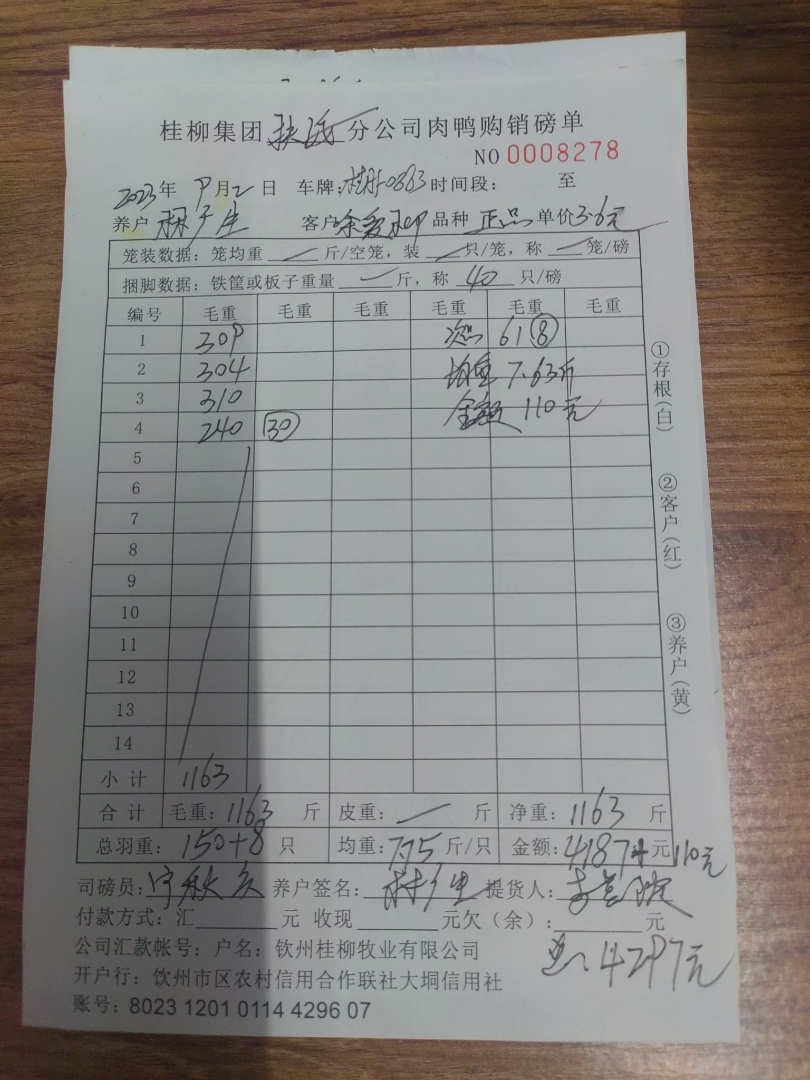 桂柳集团 分公司肉鸭购销磅单
NO 0008278
2023年 9月2日 车牌: 0863 时间段: 至
养户 客户 品种 正品 单价3.6元
笼装数据: 笼均重 — 斤/空笼, 装 — 只/笼, 称 — 笼/磅
捆脚数据: 铁筐或板子重量 — 斤, 称 40 只/磅
编号 毛重 毛重 毛重 毛重 毛重 毛重
1 309 61 ⑧
2 304 均重 7.63斤
3 310 金额 110元
4 240 ㉚
5
6
7
8
9
10
11
12
13
14
小计 1163
合计 毛重: 1163 斤 皮重: — 斤 净重: 1163 斤
总羽重: 150+8 只 均重: 7.75 斤/只 金额: 4187 元 110元
司磅员: 养户签名: 提货人:
付款方式: 汇 元 收现 元欠(余): 元
公司汇款帐号: 户名: 钦州桂柳牧业有限公司
4297元
开户行: 钦州市区农村信用合作联社大垌信用社
账号: 8023 1201 0114 4296 07
①存根(白)
②客户(红)
③养户(黄)